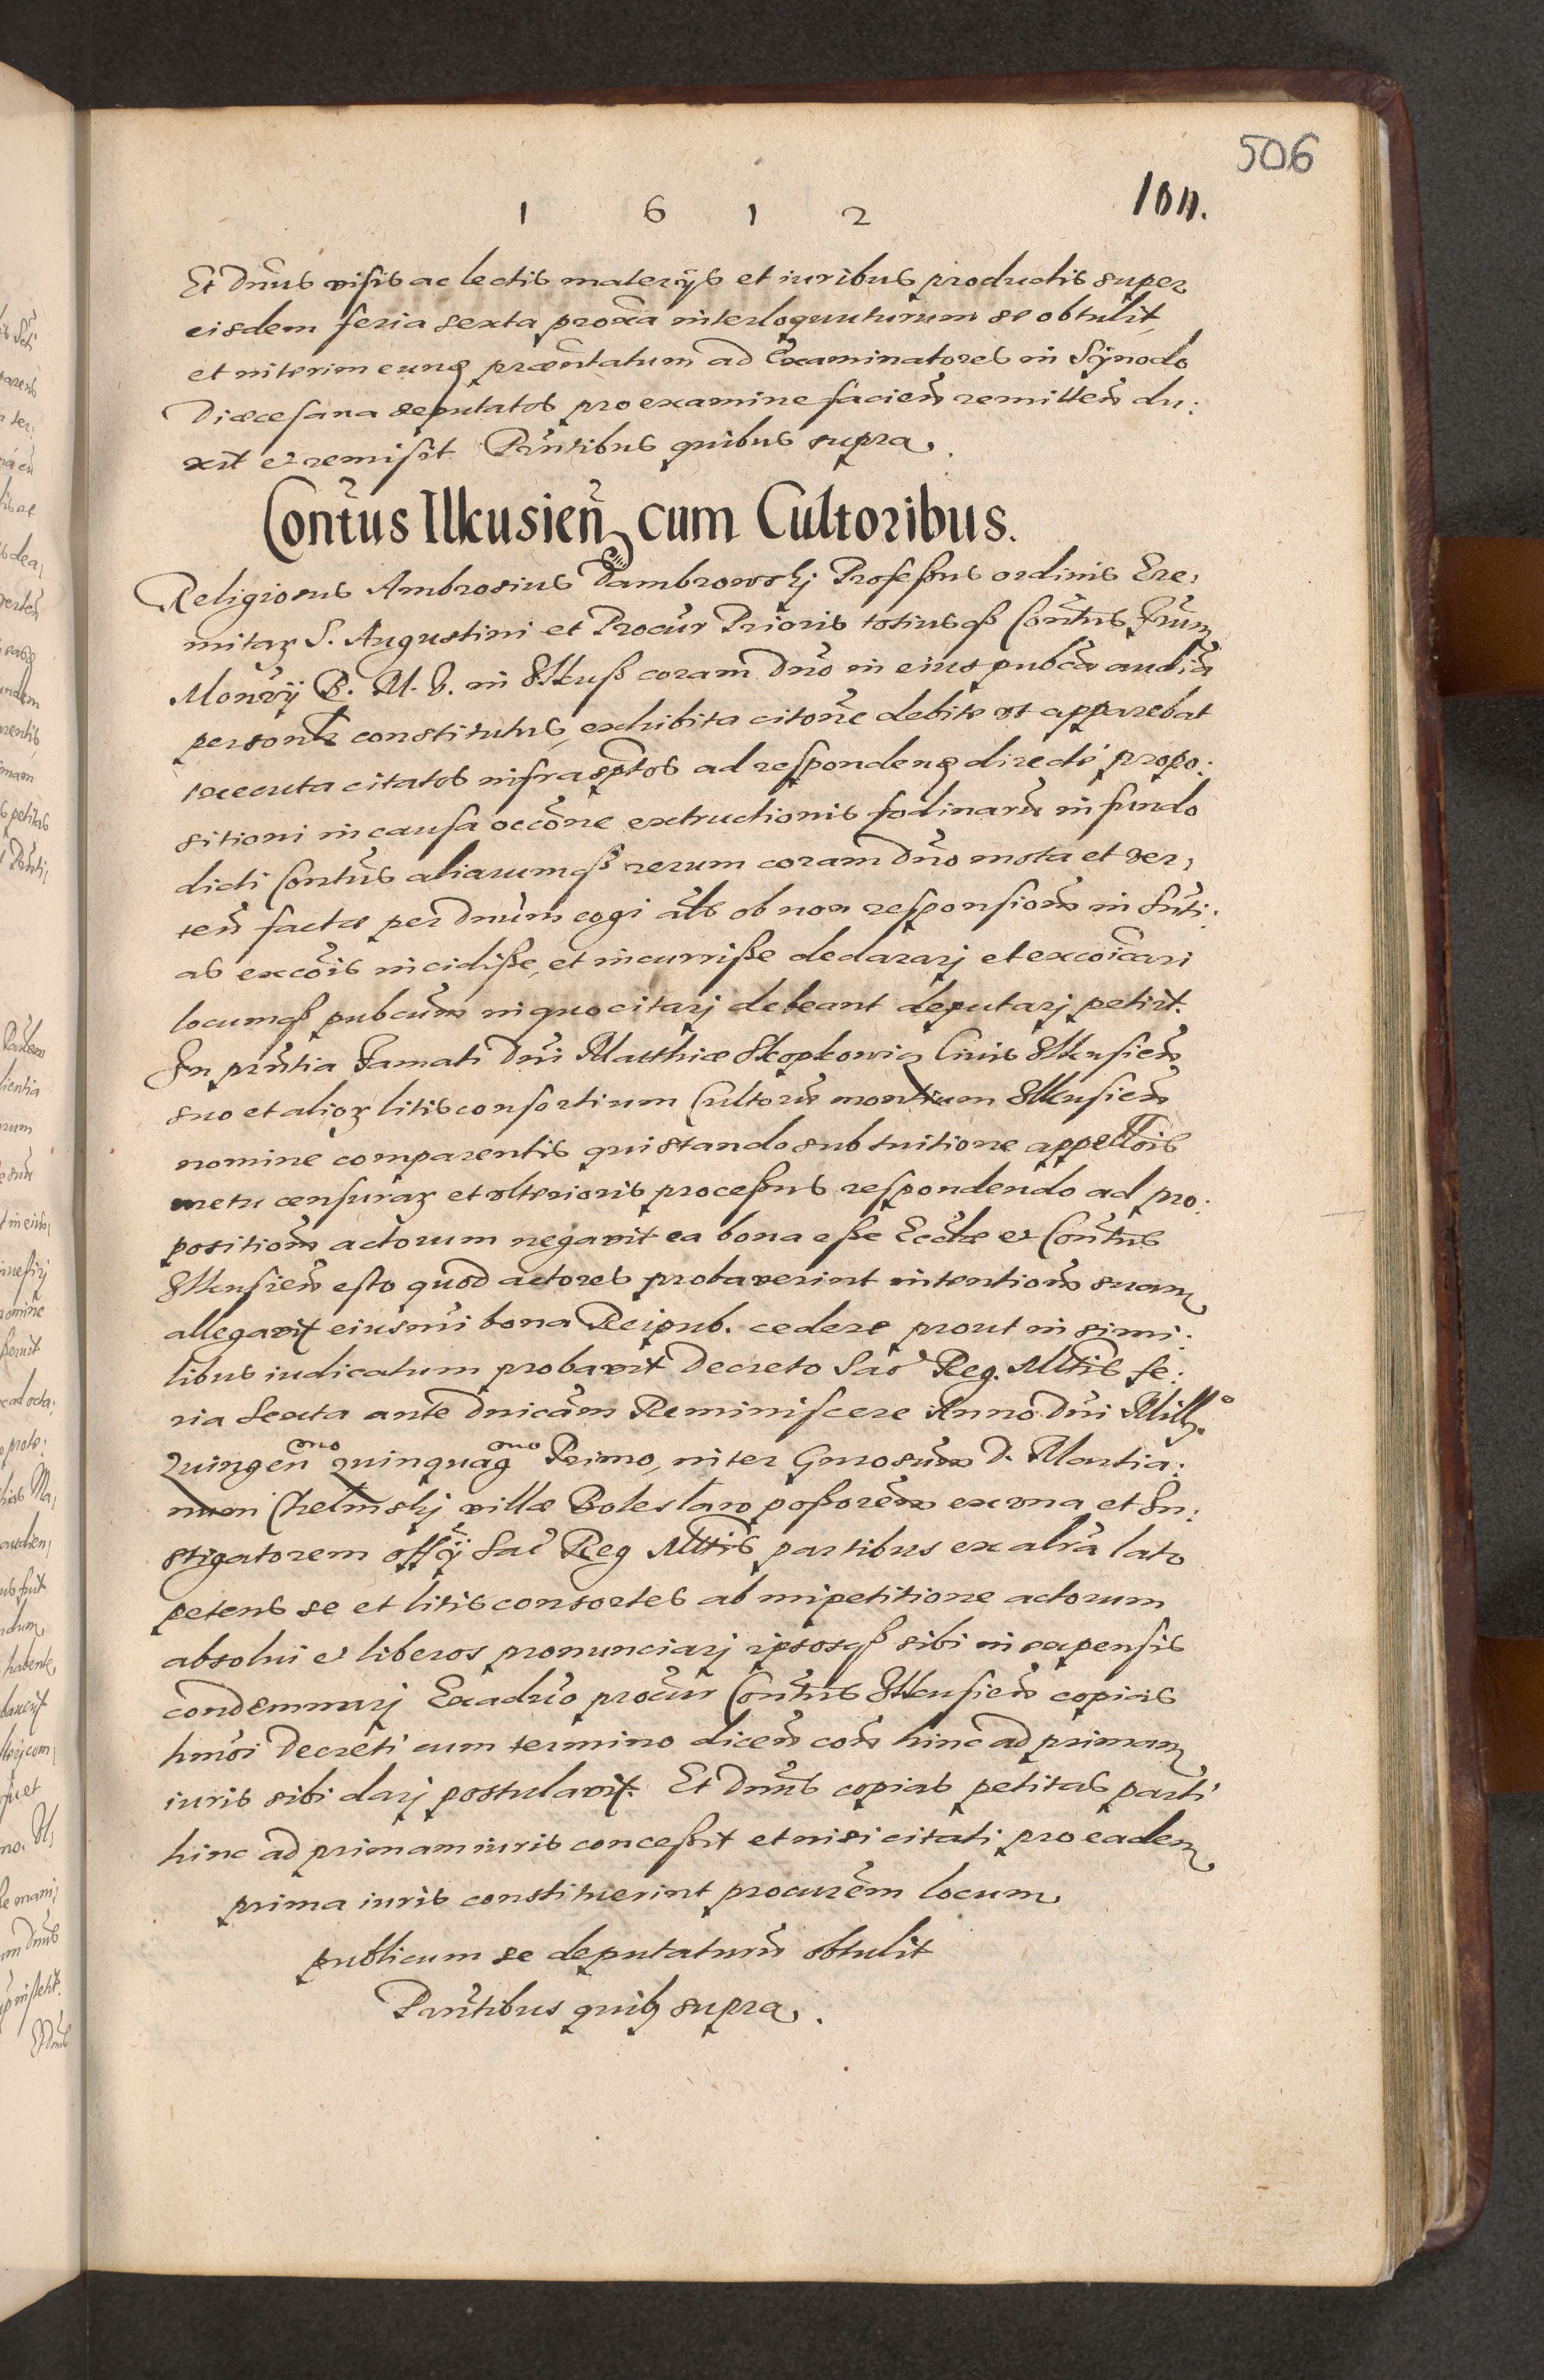 506
1 6 1 2
Et Dnus visis ac lectis materijs et iuribus productis super
eisdem feria sexta proxa interloquuturum se obtulit,
et interim eunq præntatum ad Examinatores in Synodo
Diœcesana deputatos pro examine facien remitten du:
xit et remisit Pntibus quibus supra.
Contus Ilkusien cum Cultoribus.
Religiosus Ambrosius Dambrowskj Professus ordinis Ere,
mitar S. Augustini et Procur Prioris totiusq Contus Frum
Monrij B. M. V. in Ilkuß coram Dno in eius pubca audia
personlr constitutus, exhibita citone debite ut apparebat
executa citatos infrasptos ad respondenq directe propo:
sitioni in causa occone extructionis fodinaru in fundo
dicti Contus aliarumq rerum coram Dno mota et ver,
ten factæ per Dnum cogi als ob non responsione in snti:
as excois incidisse, et incurrisse declararj et excoicari
locumq pubcum in quo citarj debeant deputarj petijt.
In pntia Famati Dni Matthiæ Skopkowiq Civis Ilkusien
suo et alior litis consortium Cultoru montium Ilkusien
nomine comparentis qui stando sub tuitione appellois
metu censurar et ulterioris processus respondendo ad pro:
positione actorum negavit ea bona esse Ecclæ et Contus
Ilkusien esto quod actores probaverint intentione suam
allegavit eiusmi bona Reipub. cedere prout in simi:
libus iudicatum probavit Decreto Sac Reg. Mttis fe:
ria Sexta ante Dnicam Reminiscere Anno Dni Mill.o
Quingen mo Quinquag mo Primo, inter Gnrosum D. Martia:
num Chelmskj villæ Boleslaw possorem ex una et In:
stigatorem offij Sac Reg Mttis partibus ex alra late
petens se et litis consortes ab impetitione actorum
absolui et liberos pronunciarj ipsosq sibi in expensis
condemnarj Ex adro procur Contus Ilkusien copias
hmoi Decreti cum termino dicen con hinc ad primam
iuris sibi darj postulavit. Et Dnus copias petitas parti
hinc ad primam iuris concessit et nisi citati pro eadem
prima iuris constituerint procurem locum
publicum se deputaturu obtulit
Pntibus quib supra.